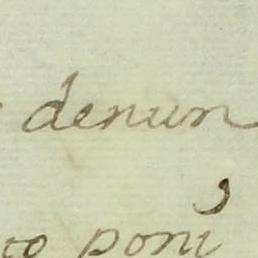 denun
to poni